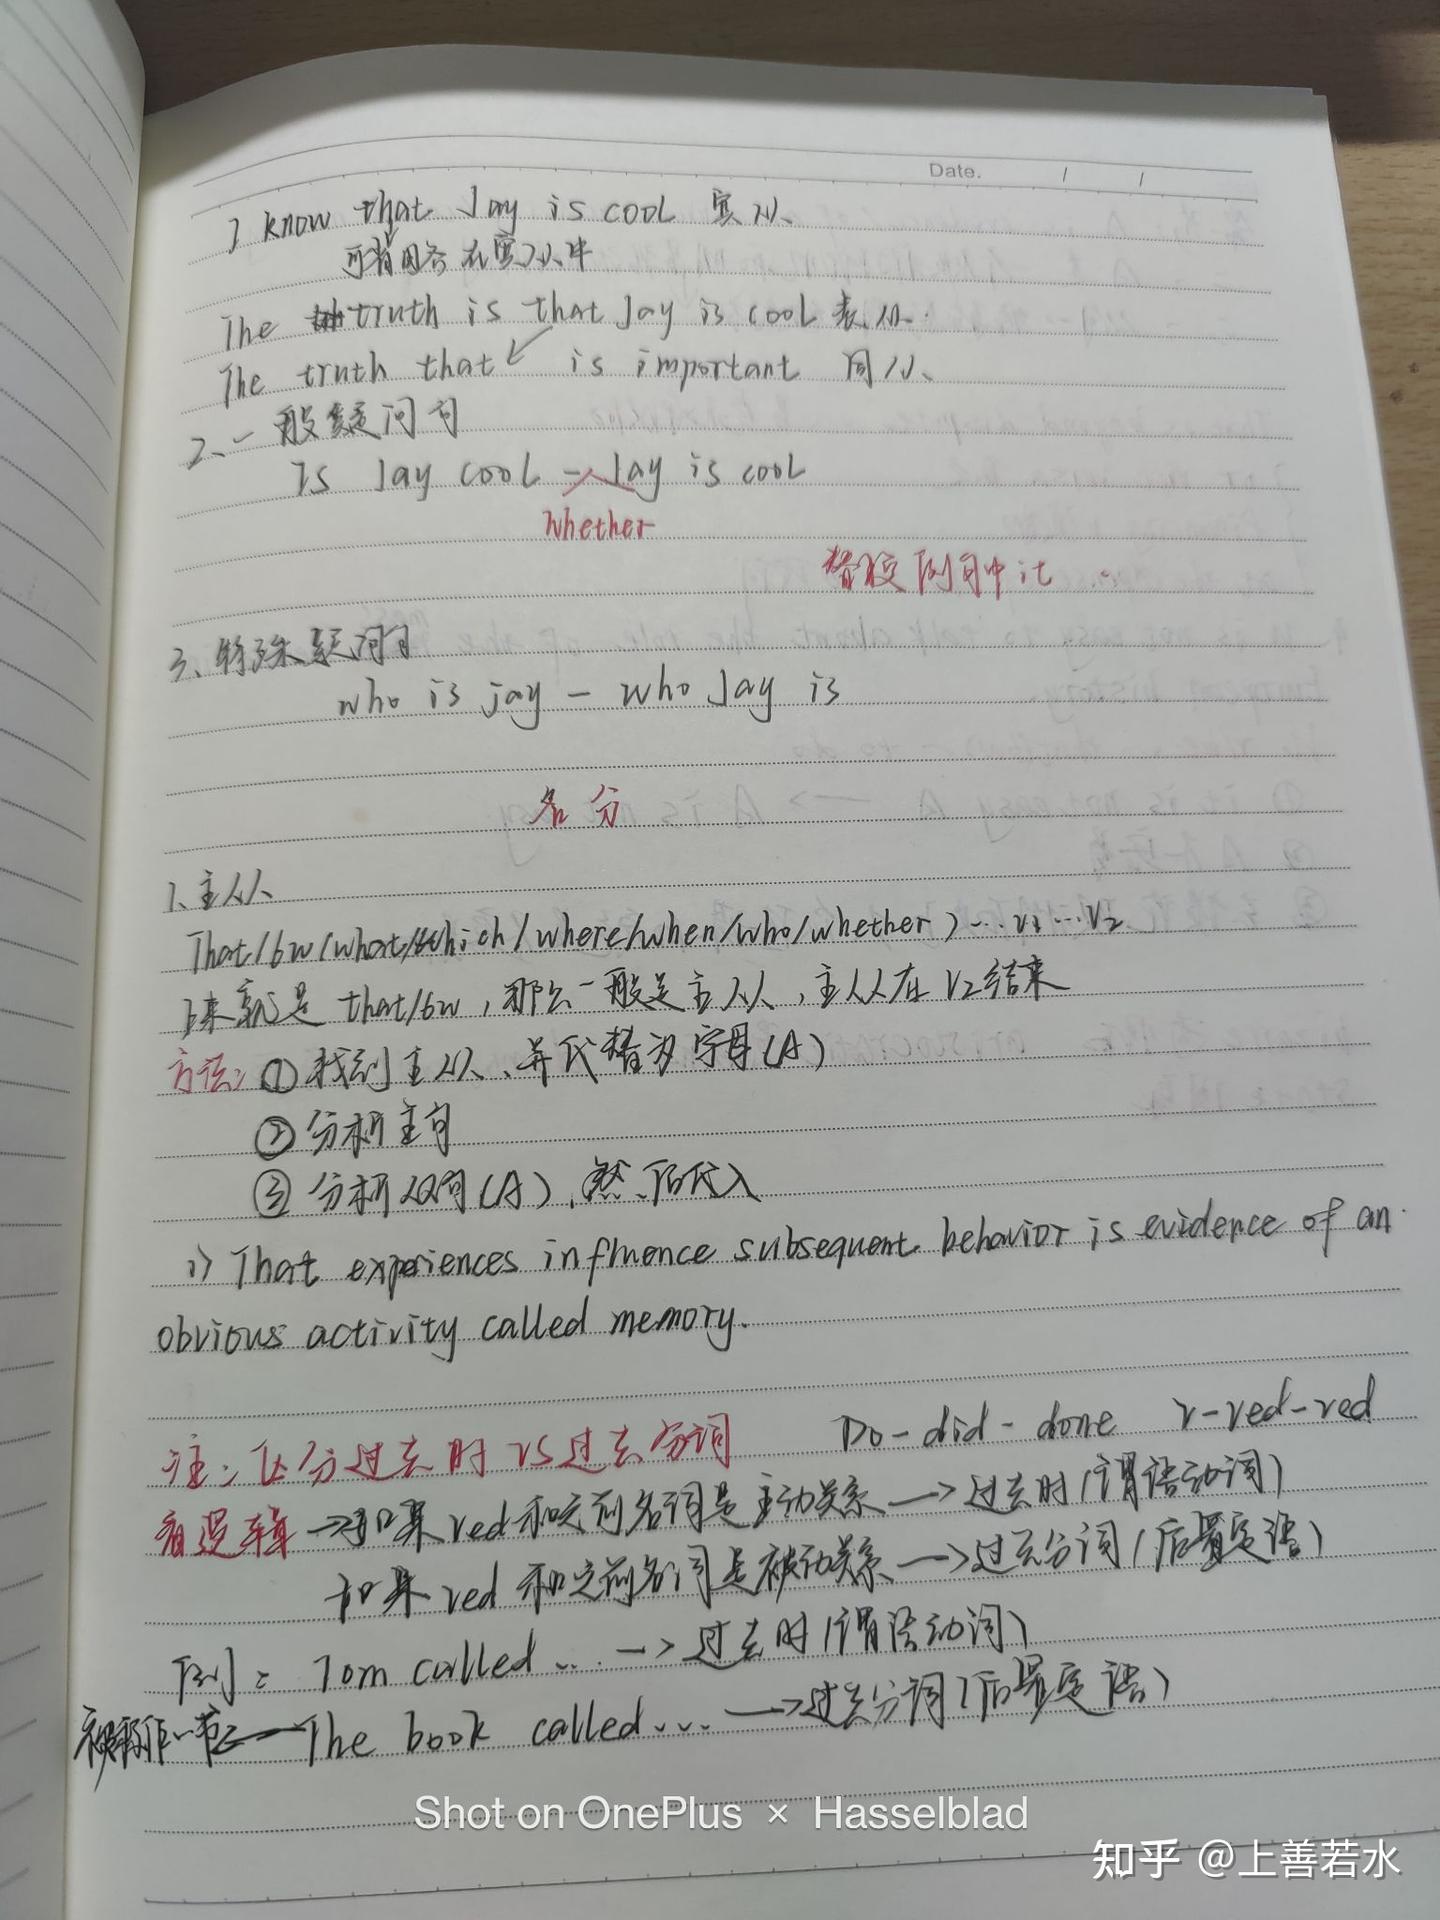 Date. / /
I know that Jay is cool 宾从
可省略 在宾从中
The truth is that Jay is cool 表从.
The truth that is important 同从
2、一般疑问句
Is Jay cool - Jay is cool
whether
替换例句中it
3、特殊疑问句
who is jay - who Jay is
名分
1、主从
That/6w(what/which/where/when/who/whether)...V1...V2
上来就是that/6w,那么一般是主从,主从在V2结束
方法: ①找到主从、并代替为字母(A)
②分析主句
③分析从句(A),然后代入
1) That experiences influence subsequent behavior is evidence of an
obvious activity called memory.
注:区分过去时 VS 过去分词 Do-did-done v-ved-ved
看逻辑→如果ved和之前名词是主动关系→过去时(谓语动词)
如果ved和之前名词是被动关系→过去分词(后置定语)
例: Tom called...→过去时(谓语动词)
The book called...→过去分词(后置定语)
Shot on OnePlus × Hasselblad
知乎 @上善若水